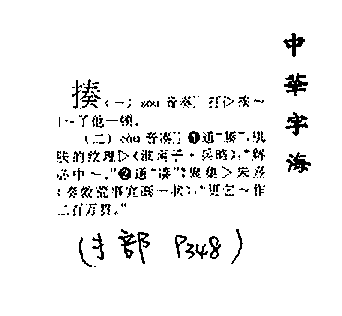 中華字海
揍(一) zòu 音奏 打▷我~
了他一顿。
(二) còu 音凑 ❶通“腠”,肌
肤的纹理▷《淮南子·兵略》:“解
必中~。”❷通“凑”,聚集▷朱熹
《奏救荒事宜画一状》:“更乞~作
二百万贯。”
(扌部 P348)